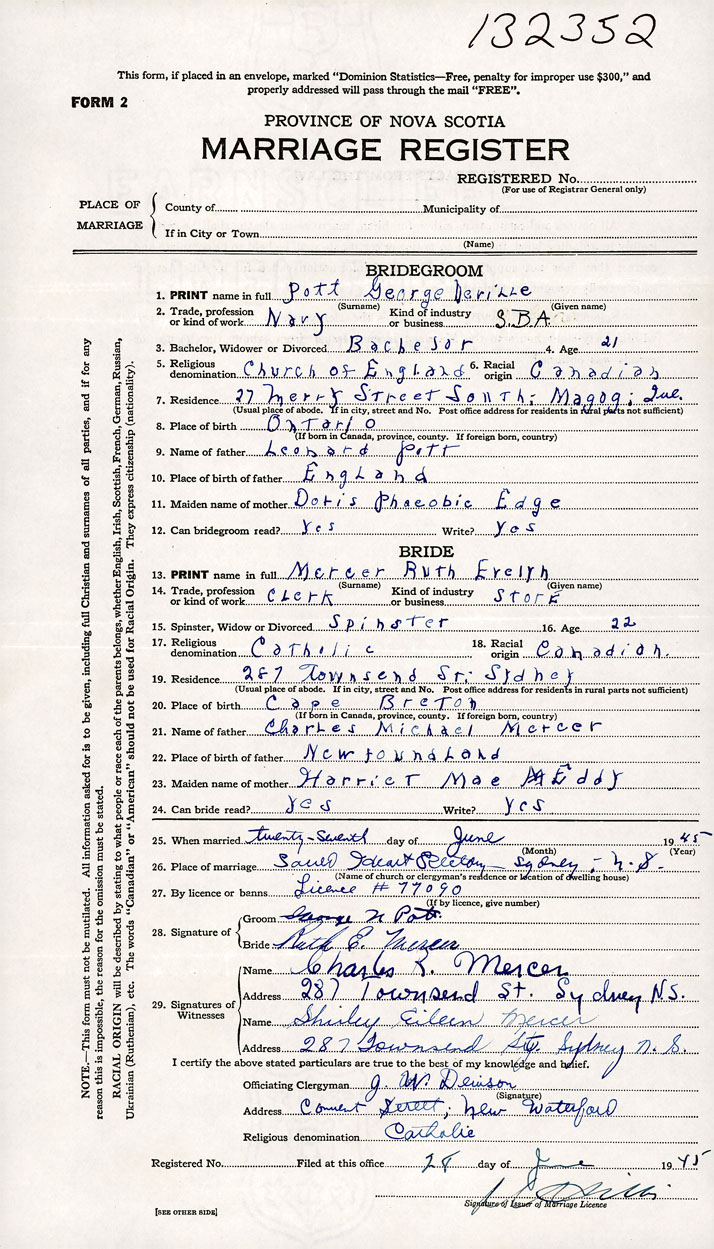 132352
This form, if placed in an envelope, marked "Dominion Statistics—Free, penalty for improper use $300," and
properly addressed will pass through the mail "FREE".
FORM 2
PROVINCE OF NOVA SCOTIA
MARRIAGE REGISTER
REGISTERED No.
(For use of Registrar General only)
PLACE OF MARRIAGE
County of Municipality of
If in City or Town
(Name)
BRIDEGROOM
1. PRINT name in full Pott George Neville
(Surname) (Given name)
2. Trade, profession or kind of work Navy Kind of industry or business S.B.A.
3. Bachelor, Widower or Divorced Bachelor 4. Age 21
5. Religious denomination Church of England 6. Racial origin Canadian
7. Residence 27 Merry Street South, Magog, Que.
(Usual place of abode. If in city, street and No. Post office address for residents in rural parts not sufficient)
8. Place of birth Ontario
(If born in Canada, province, county. If foreign born, country)
9. Name of father Leonard Pott
10. Place of birth of father England
11. Maiden name of mother Doris Phaeobie Edge
12. Can bridegroom read? Yes Write? Yes
BRIDE
13. PRINT name in full Mercer Ruth Evelyn
(Surname) (Given name)
14. Trade, profession or kind of work Clerk Kind of industry or business Store
15. Spinster, Widow or Divorced Spinster 16. Age 22
17. Religious denomination Catholic 18. Racial origin Canadian.
19. Residence 287 Townsend St. Sydney
(Usual place of abode. If in city, street and No. Post office address for residents in rural parts not sufficient)
20. Place of birth Cape Breton
(If born in Canada, province, county. If foreign born, country)
21. Name of father Charles Michael Mercer
22. Place of birth of father Newfoundland
23. Maiden name of mother Harriet Mae Eddy
24. Can bride read? Yes Write? Yes
25. When married twenty-seventh day of June 1945
(Month) (Year)
26. Place of marriage Sacred Heart Rectory Sydney, N.S.
(Name of church or clergyman's residence or location of dwelling house)
27. By licence or banns Licence # 77090
(If by licence, give number)
28. Signature of
Groom George N Pott
Bride Ruth E. Mercer
29. Signatures of Witnesses
Name Charles R. Mercer
Address 287 Townsend St. Sydney N.S.
Name Shirley Eileen Mercer
Address 287 Townsend St. Sydney N.S.
I certify the above stated particulars are true to the best of my knowledge and belief.
Officiating Clergyman J. W. Denison
(Signature)
Address Convent Street, New Waterford
Religious denomination Catholic
Registered No. Filed at this office 28 day of June 1945
Signature of Issuer of Marriage Licence
[SEE OTHER SIDE]
NOTE.—This form must not be mutilated. All information asked for is to be given, including full Christian and surnames of all parties, and if for any
reason this is impossible, the reason for the omission must be stated.
RACIAL ORIGIN will be described by stating to what people or race each of the parents belongs, whether English, Irish, Scottish, French, German, Russian,
Ukrainian (Ruthenian), etc. The words "Canadian" or "American" should not be used for Racial Origin. They express citizenship (nationality).